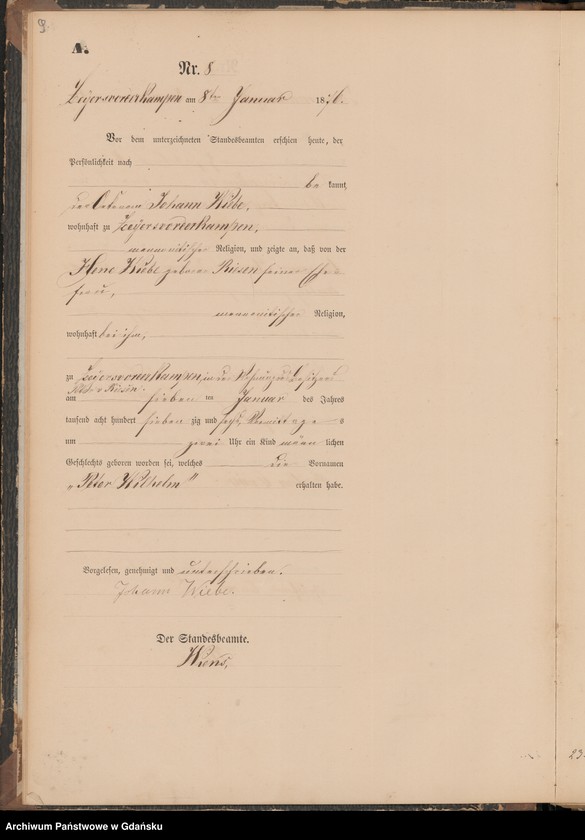 9.
A.
Nr. 8
Zeyersvorderkampen am 8ten Januar 1876.
Vor dem unterzeichneten Standesbeamten erschien heute, der
Persönlichkeit nach
be kannt,
Johann Wiebe,
wohnhaft zu Zeyersvorderkampen,
mennonitischer Religion, und zeigte an, daß von der
Wiebe geborne Riesen seiner Ehe-
frau,
mennonitischer Religion,
wohnhaft bei ihm,
zu Zeyersvorderkampen, in der Wohnung des Besitzers
Peter v Riesen
am sieben ten Januar des Jahres
tausend acht hundert sieben zig und sechs, Vormittags
um zwei Uhr ein Kind männ lichen
Geschlechts geboren worden sei, welches die Vornamen
„Peter Wilhelm" erhalten habe.
Vorgelesen, genehmigt und unterschrieben.
Johann Wiebe.
Der Standesbeamte.
Wiens,
23
Archiwum Państwowe w Gdańsku